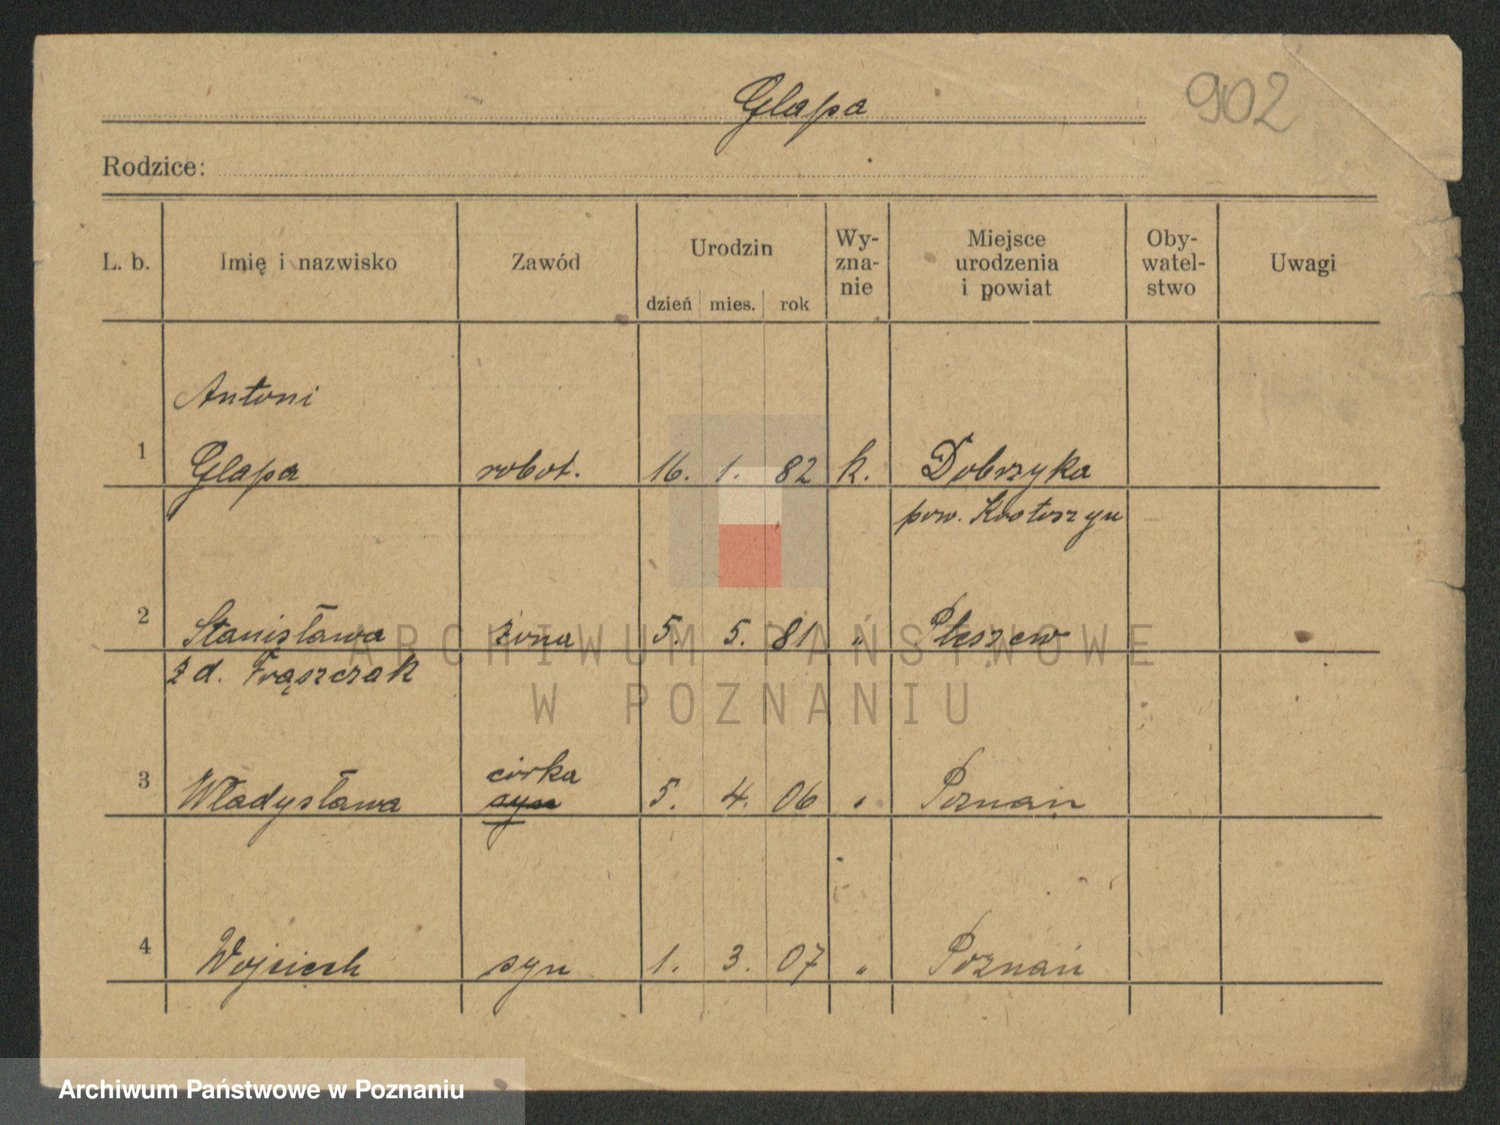 Glapa
902
Rodzice:
L. b. Imię i nazwisko Zawód Urodzin dzień mies. rok Wy-zna-nie Miejsce urodzenia i powiat Oby-watel-stwo Uwagi
Antoni
1 Glapa robot. 16. 1. 82 k. Dobrzyka
pow. Krotoszyn
2 Stanisława żona 5. 5. 81 " Pleszew
z d. Frąszczak
córka
3 Władysława syn 5. 4. 06 " Poznań
4 Wojciech syn 1. 3. 07 " Poznań
ARCHIWUM PAŃSTWOWE
W POZNANIU
Archiwum Państwowe w Poznaniu